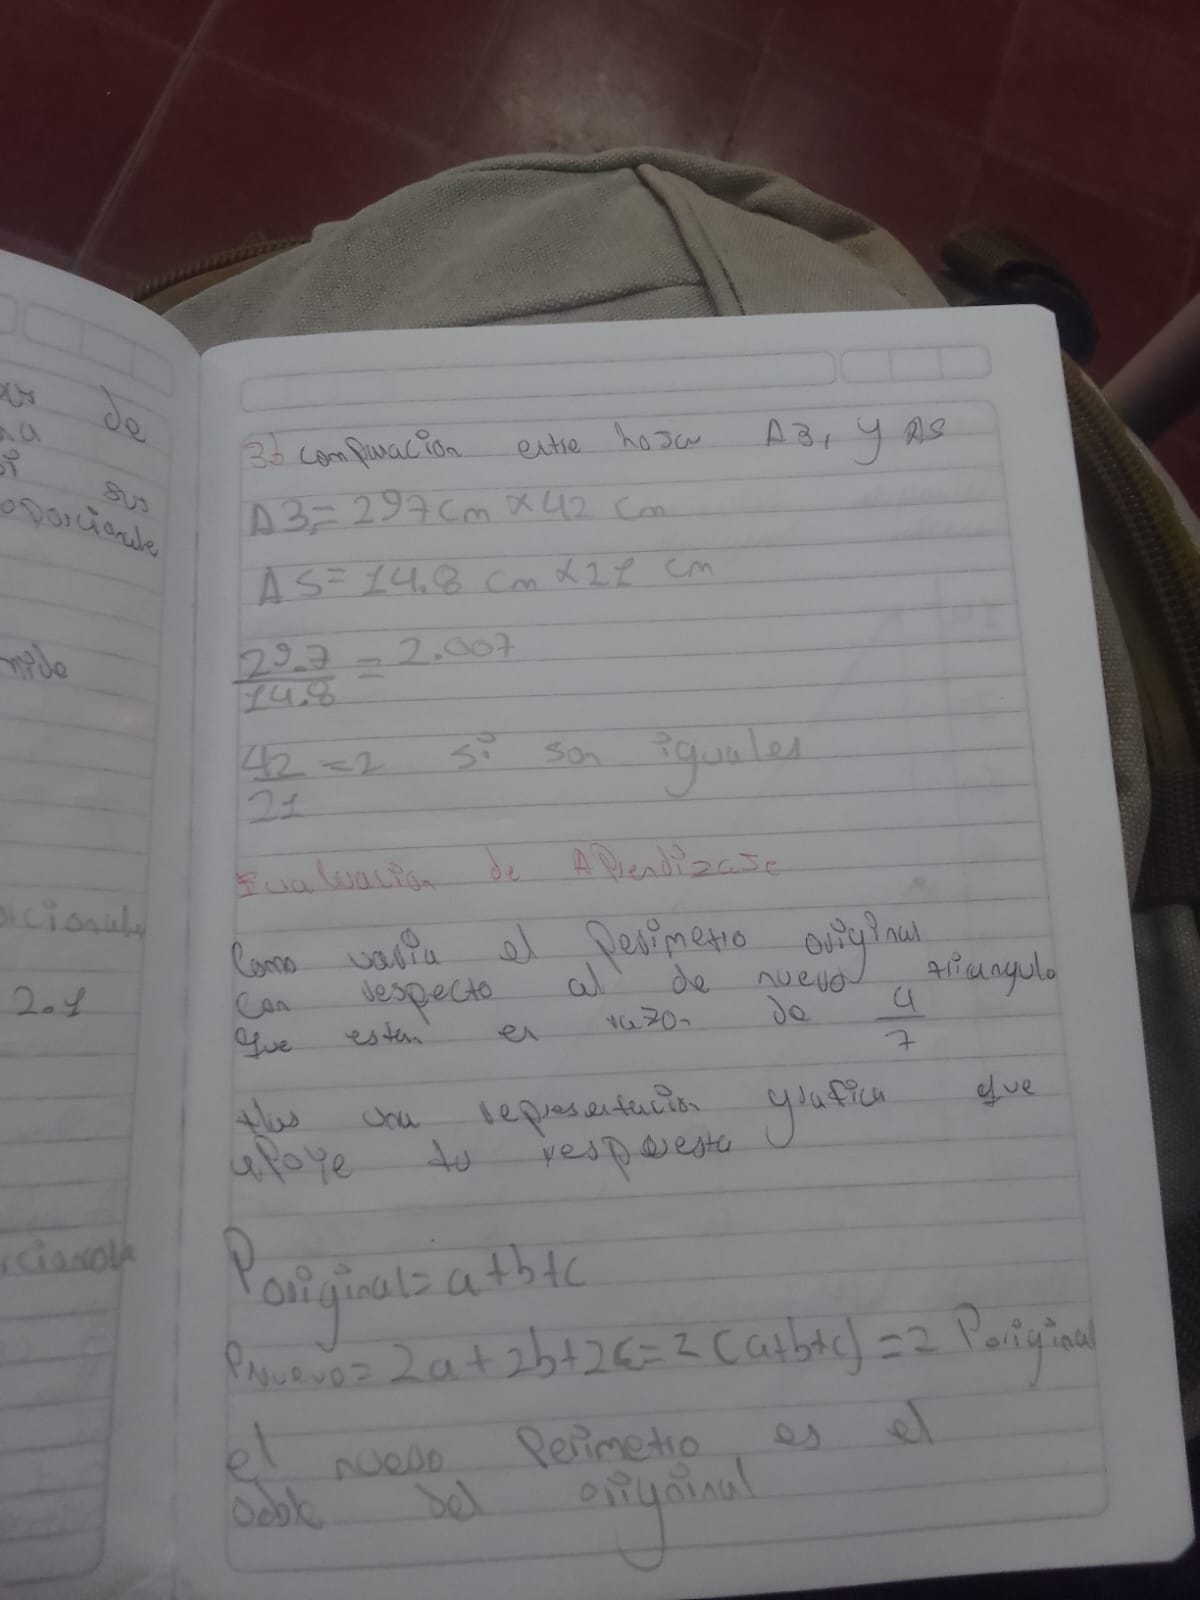 de
sus
oporcionale
mide
orcionale
2.1
rcionale
3b comparacion entre hojas A3, y A5
A3,= 297cm x 42 cm
A5= 14.8 cm x 21 cm
29.7/14.8 = 2.007
42/21 =2 si son iguales
Evaluacion de Aprendizaje
Como varia el perimetro original
con respecto al de nuevo triangulo
que estan en razon de 4/7
Has una representacion grafica que
apoye tu respuesta
Poriginal= a+b+c
PNUEVO= 2a+2b+2c=2(a+b+c)=2 Poriginal
el nuevo Perimetro es el
doble del origninal